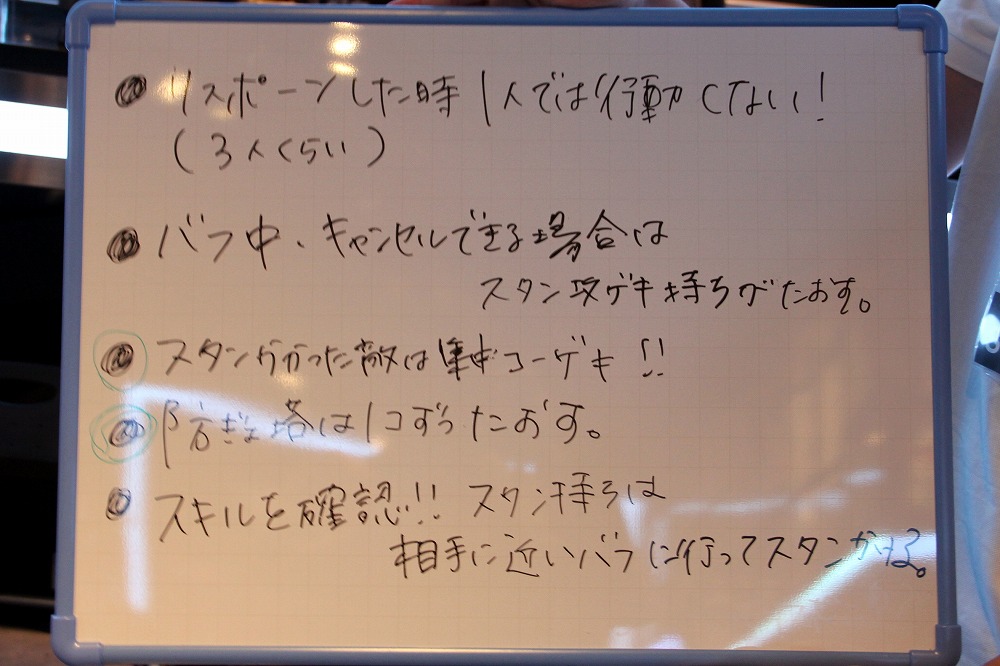 ● リスポーンした時1人では行動しない!
(3人くらい)
● バフ中、キャンセルできる場合は
スタン攻ゲキ持ちがたおす。
● スタンかかった敵は集中コーゲキ!!
● 防ぎょ塔は1コずつたおす。
● スキルを確認!! スタン持ちは
相手に近いバフに行ってスタンかける。